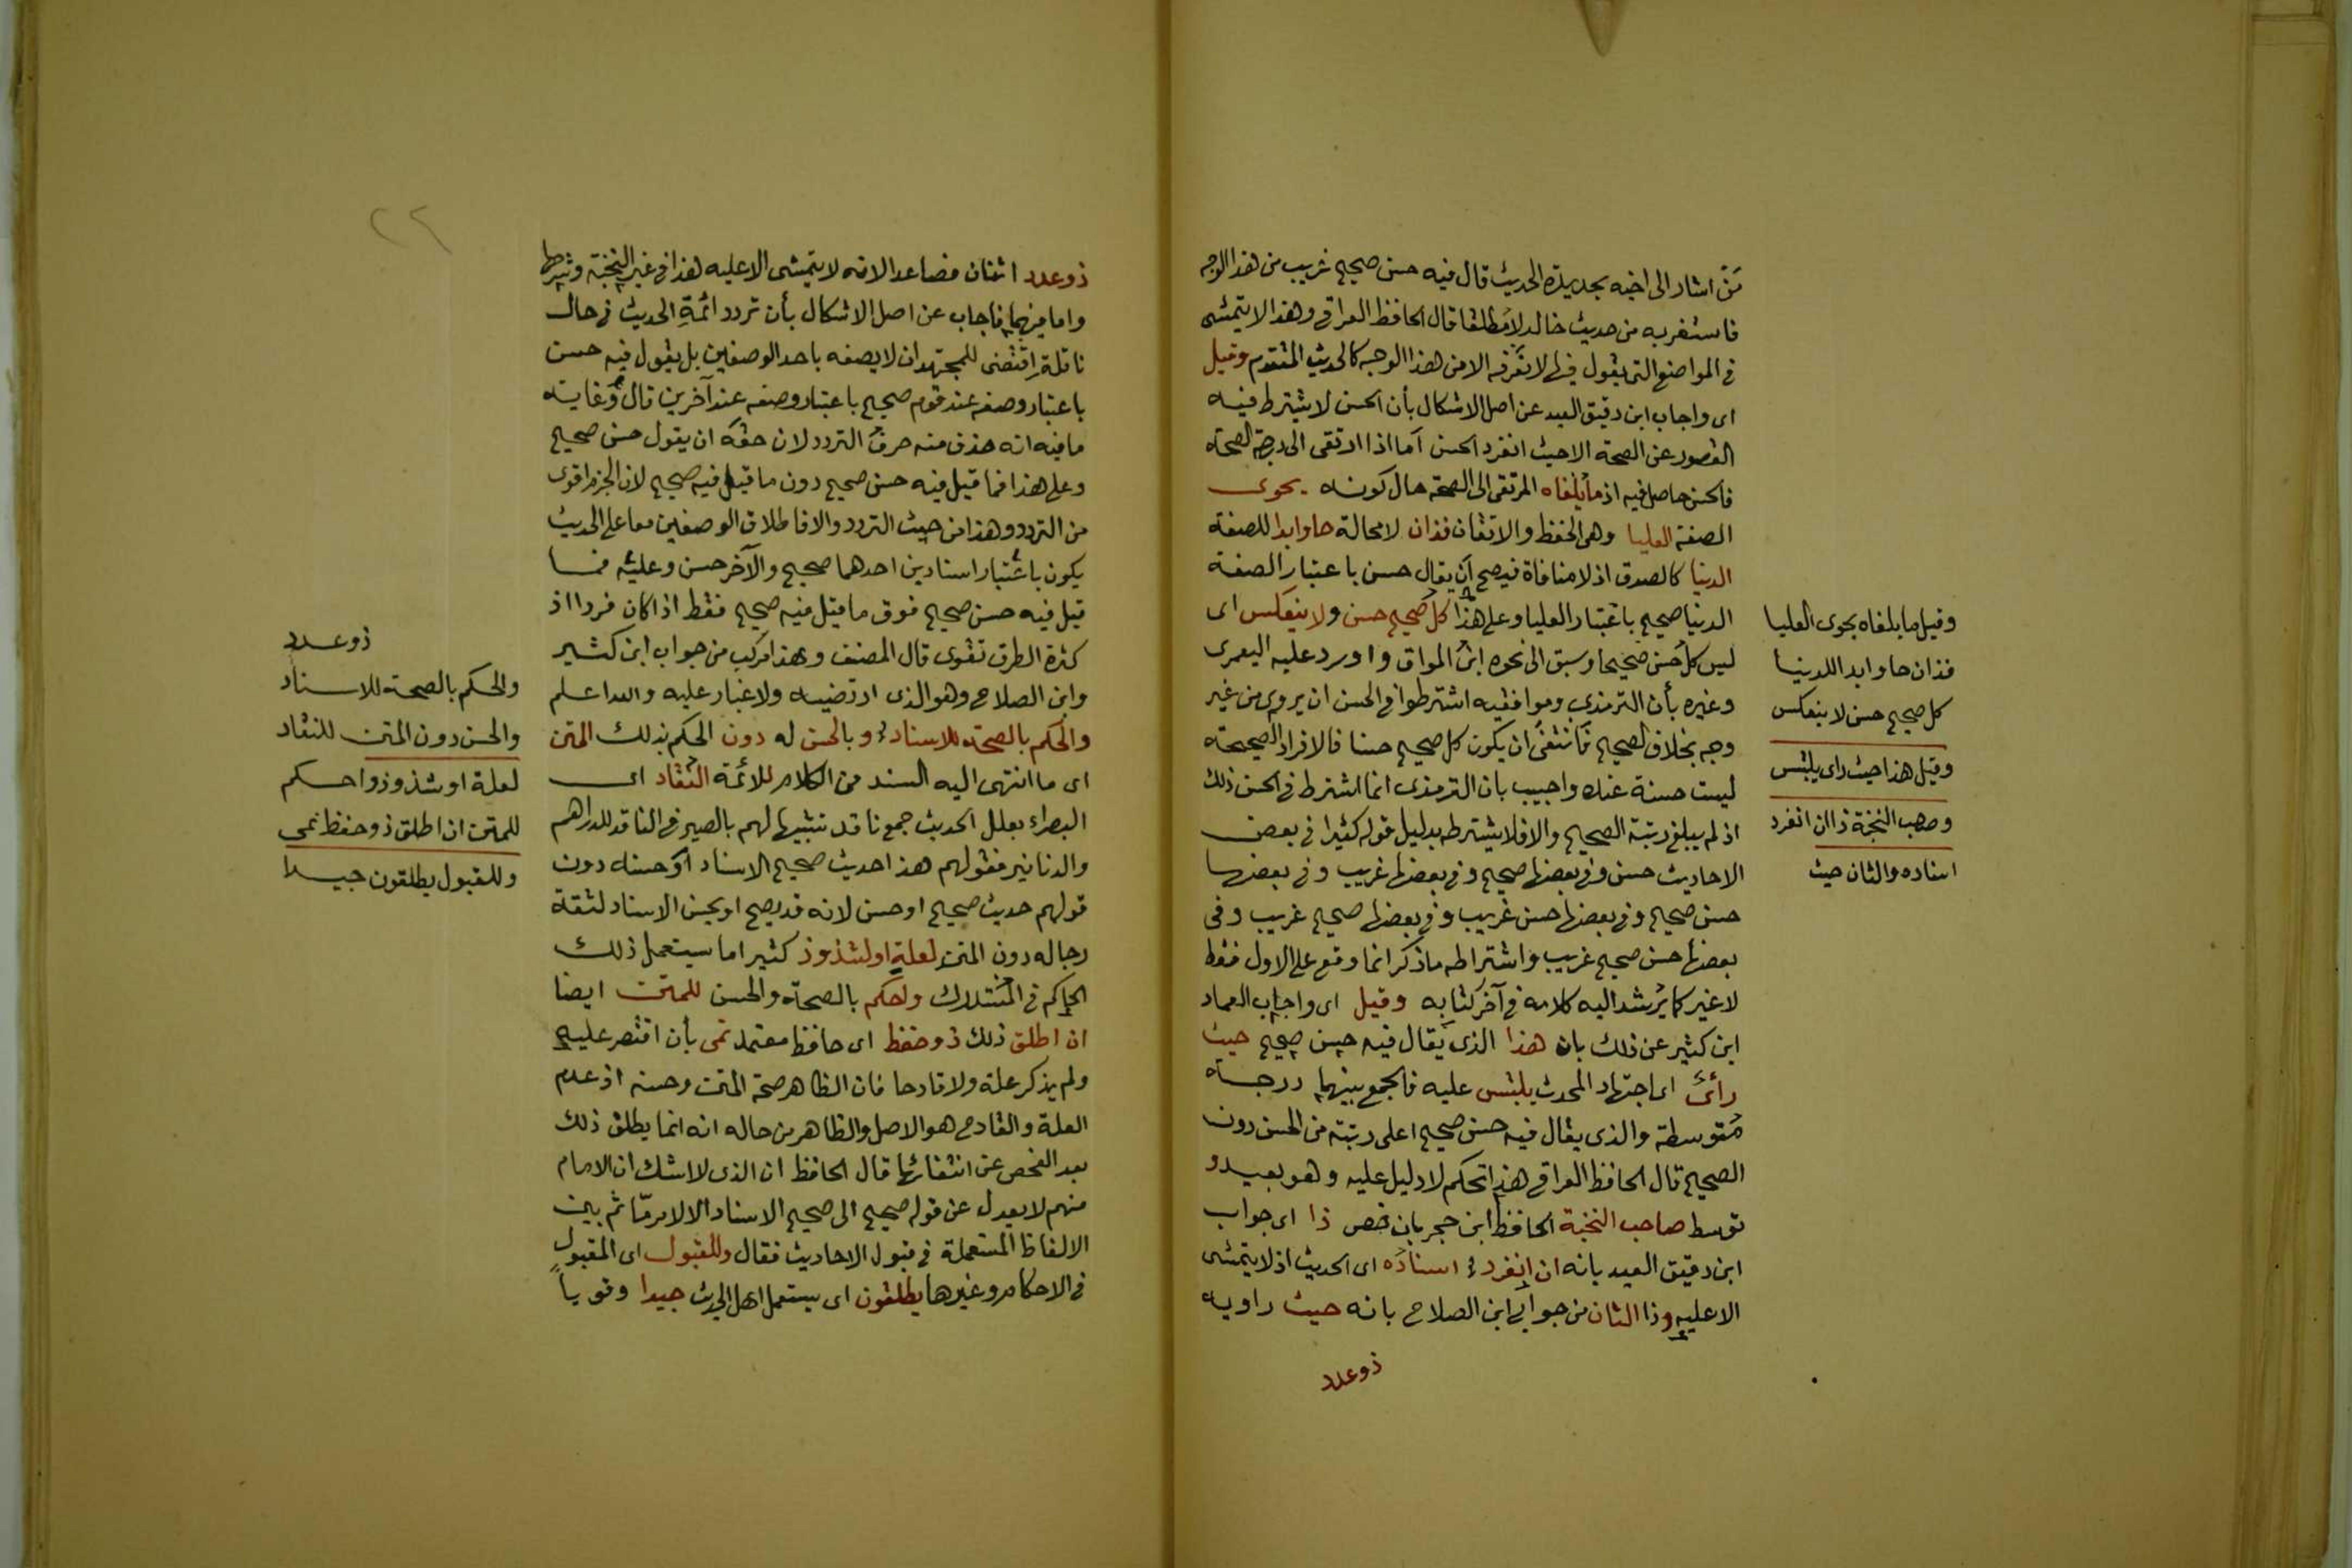 من اشار الى اخيه بحديدة الحديث قال فيه حسن صحيح غريب من هذا الوجه
فاستغربه من حديث خالد لا مطلقا قال الحافظ العراقي وهذا لا يتمشى
في المواضع التي يقول فيها لا نعرفه الا من هذا الوجه كالحديث المتقدم وقيل
اى واجاب ابن دقيق العيد عن اصل الاشكال بأن الحسن لا يشترط فيه
القصور عن الصحة الا حيث انفرد الحسن أما اذا ارتقى الى درجة الصحة
فالحسن حاصل فيه اذ ما يلفاه المرتقى الى الصحة حال كونه يحوى
الصفة العليا وهى الحفظ والاتقان فذان لا محالة حاوا بدا للصفة
الدنيا كالصدق اذ لا منافاة فيصح أن يقال حسن باعتبار الصفة
الدنيا صحيح باعتبار العليا وعلى هذا كل صحيح حسن ولا ينعكس اى
ليس كل حسن صحيحا وسبق الى نحوه ابن المواق واورد عليه اليعمرى
وغيره بأن الترمذي وموافقيه اشترطوا في الحسن ان يروى من غير
وجه بخلاف الصحيح فانتفى ان يكون كل صحيح حسنا فالافراد الصحيحة
ليست حسنة عنده واجيب بان الترمذى انما اشترط في الحسن ذلك
اذ لم يبلغ رتبة الصحيح والا فلا يشترطه بدليل قوله كثيرا في بعض
الاحاديث حسن وفي بعضها صحيح وفي بعضها غريب وفي بعضها
حسن صحيح وفي بعضها حسن غريب وفي بعضها صحيح غريب وفى
بعضها حسن صحيح غريب واشتراطه ما ذكر انما وقع على الاول فقط
لا غير كما يرشد اليه كلامه في آخر كتابه وقيل اى واجاب العماد
ابن كثير عن ذلك بان هذا الذى يقال فيه حسن صحيح حيث
رأى اى اجتهاد المحدث يلتبس عليه فالجمع بينهما درجة
متوسطة والذى يقال فيه حسن صحيح اعلى رتبة من الحسن دون
الصحيح قال الحافظ العراقي هذا تحكم لا دليل عليه وهو بعيد و
توسط صاحب النخبة الحافظ ابن حجر بان خص ذا اى جواب
ابن دقيق العيد بانه ان انفرد اسناده اى الحديث اذ لا يتمشى
الا عليه وذا الثان من جوابي ابن الصلاح بانه حيث راويه
ذو عدد
وقيل ما يلفاه يحوى العليا
فذان حاوا بدا للدنيا
كل صحيح حسن لا ينعكس
وقيل هذا حيث راى يلتبس
وصاحب النخبة ذا ان انفرد
اسناده والثان حيث
٢٢
ذو عدد اثنان فصاعدا لانه لا يتمشى الا عليه هذا في غير النخبة وشرحها
واما فيهما فأجاب عن اصل الاشكال بأن تردد ائمة الحديث في حال
ناقله اقتضى للمجتهد ان لا يصفه باحد الوصفين بل يقول فيه حسن
باعتبار وصفه عند قوم صحيح باعتبار وصفه عند آخرين قال وغايته
ما فيه انه حذف منه حرف التردد لان حقه ان يقول حسن صحيح
وعلى هذا فما قيل فيه حسن صحيح دون ما قيل فيه صحيح لان الجزم اقوى
من التردد وهذا من حيث التردد والا فاطلاق الوصفين معا على الحديث
يكون باعتبار اسنادين احدهما صحيح والآخر حسن وعليه فما
قيل فيه حسن صحيح فوق ما قيل فيه صحيح فقط اذا كان فردا اذ
كثرة الطرق تقوى قال المصنف وهذا مركب من جواب ابن كثير
وابن الصلاح وهو الذى ارتضيه ولا غبار عليه والله اعلم
والحكم بالصحة للاسناد وبالحسن له دون الحكم بذلك المتن
اى ما انتهى اليه السند من الكلام للائمة النقاد اى
البصراء بعلل الحديث جمع ناقد تشبيها لهم بالصيرفي الناقد للدراهم
والدنانير فقولهم هذا حديث صحيح الاسناد أو حسنه دون
قولهم حديث صحيح او حسن لانه قد يصح او يحسن الاسناد لثقة
رجاله دون المتن لعلة او لشذوذ كثير اما يستعمل ذلك
الحاكم في المستدرك واحكم بالصحة والحسن للمتن ايضا
ان اطلق ذلك ذو حفظ اى حافظ معتمد نمى بأن اقتصر عليه
ولم يذكر علة ولا قادحا فان الظاهر صحة المتن وحسنه اذ عدم
العلة والقادح هو الاصل والظاهر من حاله انه انما يطلق ذلك
بعد الفحص عن انتفائها قال الحافظ ان الذى لا اشك ان الامام
منهم لا يعدل عن قوله صحيح الى صحيح الاسناد الا لامر ما ثم بين
الالفاظ المستعملة في قبول الاحاديث فقال وللقبول اى المقبول
في الاحكام وغيرها يطلقون اى يستعمل اهل الحديث جيدا وقويا
ذو عدد
والحكم بالصحة للاسناد
والحسن دون المتن للنقاد
لعلة او شذوذ واحكم
للمتن ان اطلق ذو حفظ نمى
وللقبول يطلقون جيدا